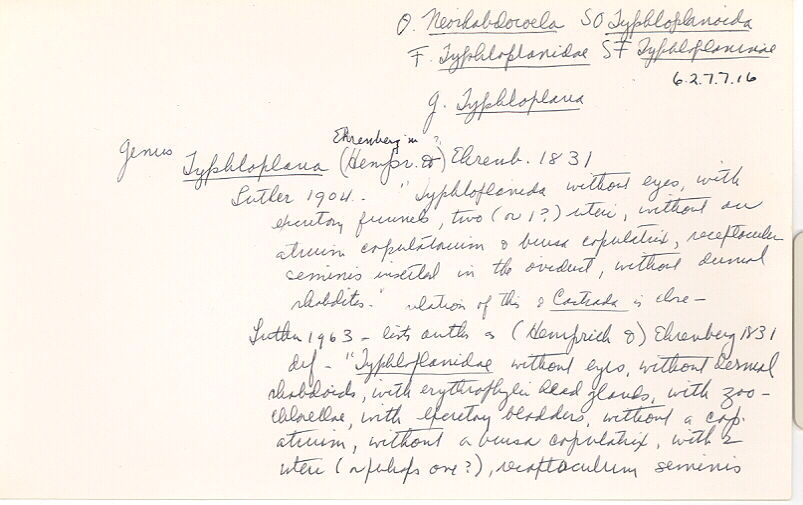 O. Neorhabdocoela SO Typhloplanoida
F. Typhloplanidae SF Typhloplaninae
6.2.7.7.16
g. Typhloplana
Ehrenberg in ?
Genus Typhloplana (Hempr. &) Ehrenb. 1831
Luther 1904. "Typhloplanida without eyes, with
excretory funnels, two (or 1?) uteri, without an
atrium copulatorium & bursa copulatrix, receptaculum
seminis inserted in the oviduct, without dermal
rhabdites." relation of this & Castrada is close -
Luther 1963 - lists auth. as (Hemprich &) Ehrenberg 1831
def - "Typhloplanidae without eyes, without dermal
rhabdoids, with erythrophilic head glands, with zoo-
chlorellae, with excretory bladders, without a cop.
atrium, without a bursa copulatrix, with 2
uteri (or perhaps one?), receptaculum seminis